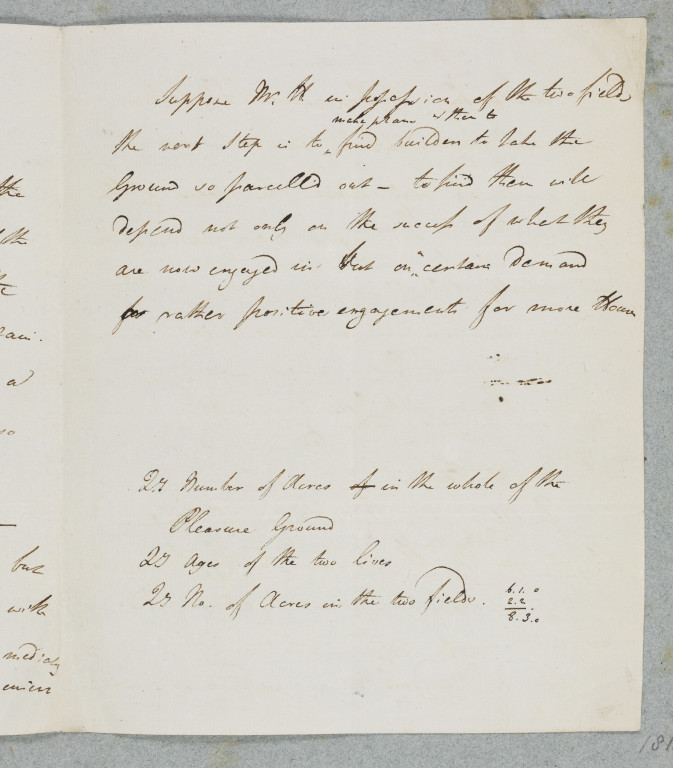 Suppose Mr. H in possession of the two fields
make plans & then to
the next Step is to ‸ find builders to take the
Ground so parcell'd out – to find them will
depend not only on the success of what they
are now engaged in but on certain Demand
rather positive engagements for more Houses
Number of Acres in the whole of the
Pleasure Ground
Ages of the two lives
No. of Acres in the two fields.
6.1.0
2.2.
8.3.0
the
the
a
so
but
with
181